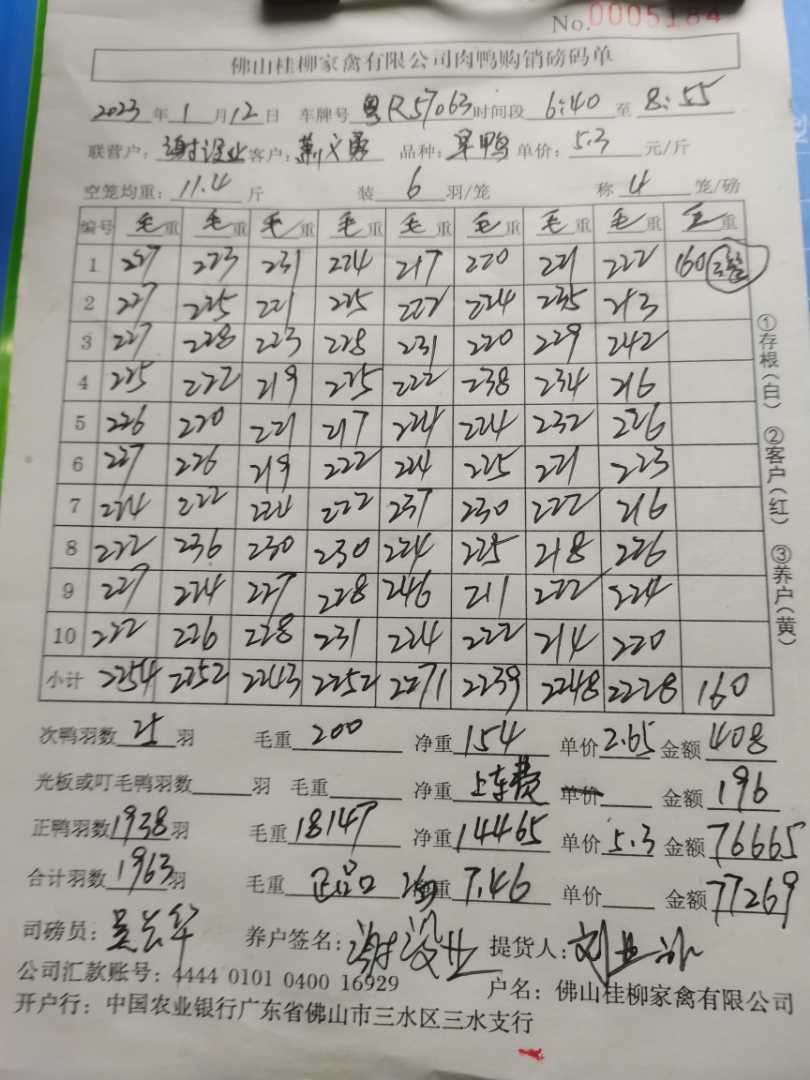 No. 0005184
佛山桂柳家禽有限公司肉鸭购销磅码单
2023年1月12日 车牌号 粤R57063 时间段 6:40 至 8:55
联营户: 谢设业 客户: 品种: 单价: 5.3 元/斤
空笼均重: 11.4 斤 装 6 羽/笼 称 4 笼/磅
编号 毛重 毛重 毛重 毛重 毛重 毛重 毛重 毛重 毛重
1 227 223 231 224 217 220 221 222 160
2 227 225 221 225 222 224 235 213
3 227 228 223 228 231 220 229 242
4 225 222 219 225 222 238 234 216
5 226 220 221 217 224 224 232 226
6 227 226 219 222 224 225 221 223
7 224 222 224 222 237 230 222 216
8 222 236 230 230 224 225 218 226
9 227 224 227 228 246 211 222 224
10 222 226 228 231 224 222 214 220
小计 2254 2252 2243 2252 2271 2239 2248 2228 160
次鸭羽数 25 羽 毛重 200 净重 154 单价 2.65 金额 408
光板或叮毛鸭羽数 羽 毛重 净重 上车费 单价 金额 196
正鸭羽数 1938 羽 毛重 18147 净重 14465 单价 5.3 金额 76665
合计羽数 1963 羽 毛重 正品 重 7.46 单价 金额 77269
司磅员: 养户签名: 谢设业 提货人:
公司汇款账号: 4444 0101 0400 16929 户名: 佛山桂柳家禽有限公司
开户行: 中国农业银行广东省佛山市三水区三水支行
①存根(白) ②客户(红) ③养户(黄)